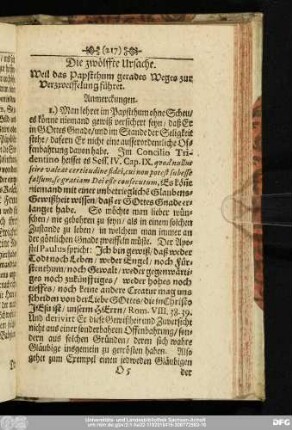 (217)
Die zwölffte Ursache.
Weil das Papsthum gerades Weges zur
Verzweiffelung führet.
Anmerckungen.
1.) Man lehret im Papsthum ohne Scheu/
es könne niemand gewiß versichert seyn/ daß Er
in GOttes Gnade/ und im Stande der Seligkeit
stehe/ dafern Er nicht eine ausserordentliche Of-
fenbahrung davon habe. Im Concilio Tri-
dentino heisset es Sess. IV. Cap. IX. quod nullus
scire valeat certitudine fidei, cui non potest subesse
falsum, se gratiam Dei esse consecutum, Es könne
niemand mit einer unbetrieglichen Glaubens-
Gewißheit wissen/ daß er GOttes Gnade er-
langet habe. So möcht man lieber wün-
schen/ nie gebohren zu seyn/ als in einem solchen
Zustande zu leben/ in welchem man immer an
der göttlichen Gnade zweiffeln müste. Der Apo-
stel Paulus spricht: Ich bin gewiß/ daß weder
Todt noch Leben/ weder Engel/ noch Für-
stenthum/ noch Gewalt/ weder gegenwärti-
ges noch zukünfftiges/ weder hohes noch
tieffes/ noch keine andere Creatur mag uns
scheiden von der Liebe GOttes/ die in Christo
JEsu ist/ unserm HErrn/ Rom. VIII, 38. 39.
Und derivirt Er diese Gewißheit und Zuversicht
nicht aus einer sonderbahren Offenbahrung/ son-
dern aus solchen Gründen/ deren sich wahre
Gläubige insgemein zu getrösten haben. Also
gehet zum Exempel einen jedweden Gläubigen
O 5
der
Universitäts- und Landesbibliothek Sachsen-Anhalt